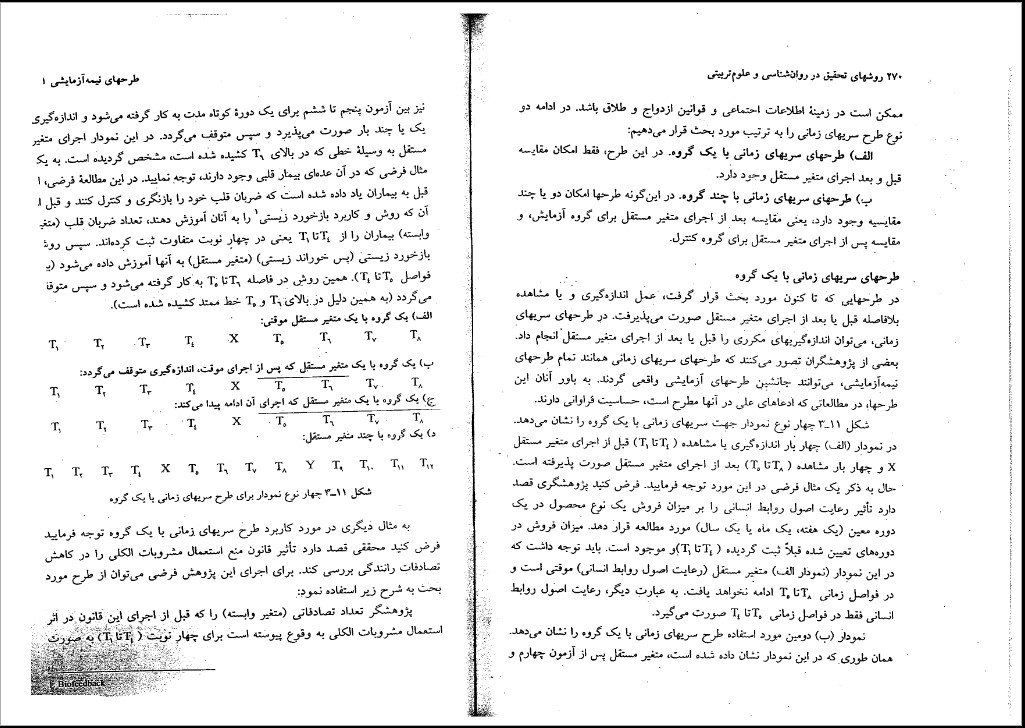 ۲۷۰ روشهای تحقیق در روان‌شناسی و علوم تربیتی
ممکن است در زمینهٔ اطلاعات اجتماعی و قوانین ازدواج و طلاق باشد. در ادامه دو
نوع طرح سریهای زمانی را به ترتیب مورد بحث قرار می‌دهیم:
الف) طرحهای سریهای زمانی با یک گروه. در این طرح، فقط امکان مقایسه
قبل و بعد اجرای متغیر مستقل وجود دارد.
ب) طرحهای سریهای زمانی با چند گروه. در این‌گونه طرحها امکان دو یا چند
مقایسه وجود دارد، یعنی مقایسه بعد از اجرای متغیر مستقل برای گروه آزمایش، و
مقایسه پس از اجرای متغیر مستقل برای گروه کنترل.
طرحهای سریهای زمانی با یک گروه
در طرحهایی که تا کنون مورد بحث قرار گرفت، عمل اندازه‌گیری و یا مشاهده
بلافاصله قبل یا بعد از اجرای متغیر مستقل صورت می‌پذیرفت. در طرحهای سریهای
زمانی، می‌توان اندازه‌گیریهای مکرری را قبل یا بعد از اجرای متغیر مستقل انجام داد.
بعضی از پژوهشگران تصور می‌کنند که طرحهای سریهای زمانی همانند تمام طرحهای
نیمه‌آزمایشی، می‌توانند جانشین طرحهای آزمایشی واقعی گردند. به باور آنان این
طرحها، در مطالعاتی که ادعاهای علی در آنها مطرح است، حساسیت فراوانی دارند.
شکل ۱۱ـ۳ چهار نوع نمودار جهت سریهای زمانی با یک گروه را نشان می‌دهد.
در نمودار (الف) چهار بار اندازه‌گیری یا مشاهده (T۱ تا T٤) قبل از اجرای متغیر مستقل
X و چهار بار مشاهده (T۵ تا T۸) بعد از اجرای متغیر مستقل صورت پذیرفته است.
حال به ذکر یک مثال فرضی در این مورد توجه فرمایید. فرض کنید پژوهشگری قصد
دارد تأثیر رعایت اصول روابط انسانی را بر میزان فروش یک نوع محصول در یک
دوره معین (یک هفته، یک ماه یا یک سال) مورد مطالعه قرار دهد. میزان فروش در
دوره‌های تعیین شده قبلاً ثبت گردیده (T۱ تا T٤) و موجود است. باید توجه داشت که
در این نمودار (نمودار الف) متغیر مستقل (رعایت اصول روابط انسانی) موقتی است و
در فواصل زمانی T۵ تا T۸ ادامه نخواهد یافت. به عبارت دیگر، رعایت اصول روابط
انسانی فقط در فواصل زمانی T٤ تا T۵ صورت می‌گیرد.
نمودار (ب) دومین مورد استفاده طرح سریهای زمانی با یک گروه را نشان می‌دهد.
همان طوری که در این نمودار نشان داده شده است، متغیر مستقل پس از آزمون چهارم و
طرحهای نیمه‌آزمایشی ۱
نیز بین آزمون پنجم تا ششم برای یک دورهٔ کوتاه مدت به کار گرفته می‌شود و اندازه‌گیری
یک یا چند بار صورت می‌پذیرد و سپس متوقف می‌گردد. در این نمودار اجرای متغیر
مستقل به وسیلهٔ خطی که در بالای T٦ کشیده شده است، مشخص گردیده است. به یک
مثال فرضی که در آن عده‌ای بیمار قلبی وجود دارند، توجه نمایید. در این مطالعهٔ فرضی، ا
قبل به بیماران یاد داده شده است که ضربان قلب خود را بازنگری و کنترل کنند و قبل ا
آن که روش و کاربرد بازخورد زیستی۱ را به آنان آموزش دهند، تعداد ضربان قلب (متغی
وابسته) بیماران را از T۱ تا T٤ یعنی در چهار نوبت متفاوت ثبت کرده‌اند. سپس روش
بازخورد زیستی (پس خوراند زیستی) (متغیر مستقل) به آنها آموزش داده می‌شود (ب
فواصل T٤ تا T۵). همین روش در فاصله T۵ تا T٦ به کار گرفته می‌شود و سپس متوقف
می‌گردد (به همین دلیل در بالای T٦ و T۵ خط ممتد کشیده شده است).
الف) یک گروه با یک متغیر مستقل موقتی:
T۱ T۲ T۳ T٤ X T۵ T٦ T۷ T۸
ب) یک گروه با یک متغیر مستقل که پس از اجرای موقت، اندازه‌گیری متوقف می‌گردد:
T۱ T۲ T۳ T٤ X T۵ T٦ T۷ T۸
ج) یک گروه با یک متغیر مستقل که اجرای آن ادامه پیدا می‌کند:
T۱ T۲ T۳ T٤ X T۵ T٦ T۷ T۸
د) یک گروه با چند متغیر مستقل:
T۱ T۲ T۳ T٤ X T۵ T٦ T۷ T۸ Y T۹ T۱۰ T۱۱ T۱۲
شکل ۱۱ـ۳ چهار نوع نمودار برای طرح سریهای زمانی با یک گروه
به مثال دیگری در مورد کاربرد طرح سریهای زمانی با یک گروه توجه فرمایید
فرض کنید محققی قصد دارد تأثیر قانون منع استعمال مشروبات الکلی را در کاهش
تصادفات رانندگی بررسی کند. برای اجرای این پژوهش فرضی می‌توان از طرح مورد
بحث به شرح زیر استفاده نمود:
پژوهشگر تعداد تصادفاتی (متغیر وابسته) را که قبل از اجرای این قانون در اثر
استعمال مشروبات الکلی به وقوع پیوسته است برای چهار نوبت (T۱ تا T٤) به صورت
Biofeedback